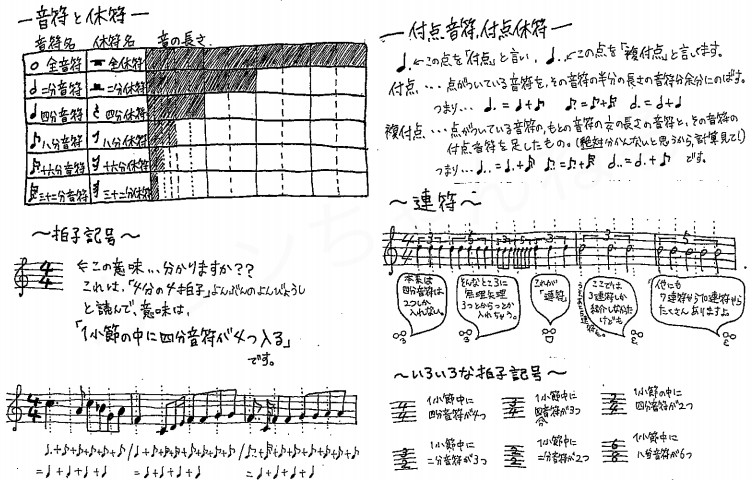 音符と休符
音符名 休符名 音の長さ
全音符 全休符
二分音符 二分休符
四分音符 四分休符
八分音符 八分休符
十六分音符 十六分休符
三十二分音符 三十二分休符
～拍子記号～
4
4
←この意味…分かりますか??
これは、「4分の4拍子」よんぶんのよんびょうし
と読んで、意味は、
「1小節の中に四分音符が4つ入る」
です。
4
4
付点音符,付点休符
←この点を「付点」と言い、 ←この点を「複付点」と言います。
付点…点がついている音符を、その音符の半分の長さの音符分余分にのばす。
つまり…
複付点…点がついている音符の、もとの音符の
の長さの音符と、その音符の
付点音符を足したもの。(絶対分かんないと思うから、計算見て!)
つまり… です。
～連符～
4
4
3 5 3 5 3 3 3 5
本来は
四分音符は
2つしか
入れない。
そんなところに
無理矢理
3つとか5つとか
入れちゃう。
これが
「連符」
ここでは
3連符しか
紹介しなかった
けども
他にも
7連符から10連符から
たくさんありますよ
～いろいろな拍子記号～
4
4
1小節中に
四分音符が4つ
3
4
1小節中に
四分音符が3つ
2
4
1小節の中に
四分音符が2つ
3
2
1小節中に
二分音符が3つ
2
2
1小節中に
二分音符が2つ
6
8
1小節中に
八分音符が6つ